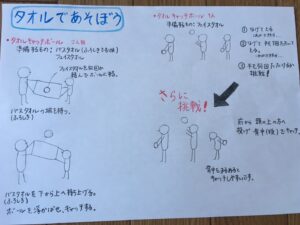 タオルであそぼう
・タオルキャッチボール 2人組
準備するもの:バスタオル(ふろしきでも可)
フェイスタオル
フェイスタオルを何回か
結んでボールにする。
バスタオルの端を持つ。
(ふろしき)
バスタオルを下から上へ持ち上げる。
(ふろしき)
ボールを浮かばせ、キャッチする。
・タオルキャッチボール 1人
準備するもの:フェイスタオル
① 投げてとる
② 投げて
挑戦!
さらに
挑戦!
前から頭の上の方へ
投げ背中(後)でキャッチ
背中をまるめると
キャッチしやすいです。